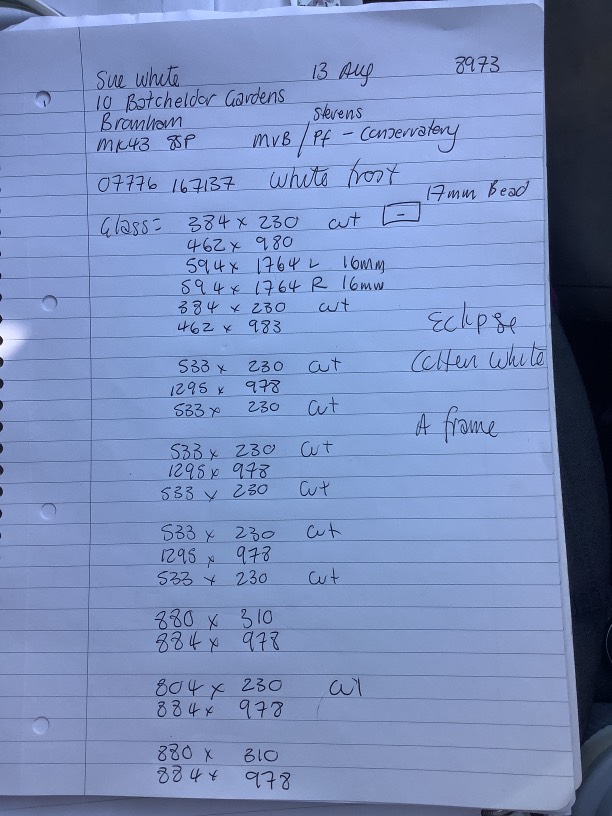 Sue White 13 Aug 8973
10 Batchelder Gardens
Bromham
MK43 8SP MVB / Stevens Pf - Conservatory
07776 167137 White frost
17mm Bead
Glass = 384 x 230 cut -
462 x 980
594 x 1764 L 16mm
594 x 1764 R 16mm
384 x 230 cut
462 x 983
Eclipse
533 x 230 cut White
1295 x 978
533 x 230 cut
A frame
533 x 230 cut
1295 x 978
533 x 230 cut
533 x 230 cut
1295 x 978
533 x 230 cut
880 x 310
884 x 978
804 x 230 cut
884 x 978
880 x 310
884 x 978